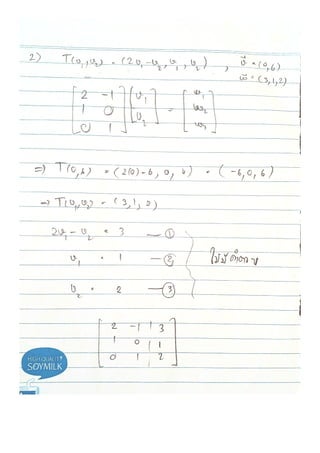 2) T(v₁,v₂) = (2v₁-v₂, v₁, v₂) , v⃗ = (0,6)
w⃗ = (3,1,2)
[2 -1] [v₁] = [w₁]
[1 0] [v₂] [w₂]
[0 1] [w₃]
⇒ T(0,6) = (2(0)-6, 0, 6) = (-6,0,6)
→ T(v₁,v₂) = (3,1,2)
2v₁ - v₂ = 3 — ①
v₁ = 1 — ② ไม่มีคำตอบ
v₂ = 2 — ③
[2 -1 | 3]
[1 0 | 1]
[0 1 | 2]
HIGH QUALITY
SOYMILK